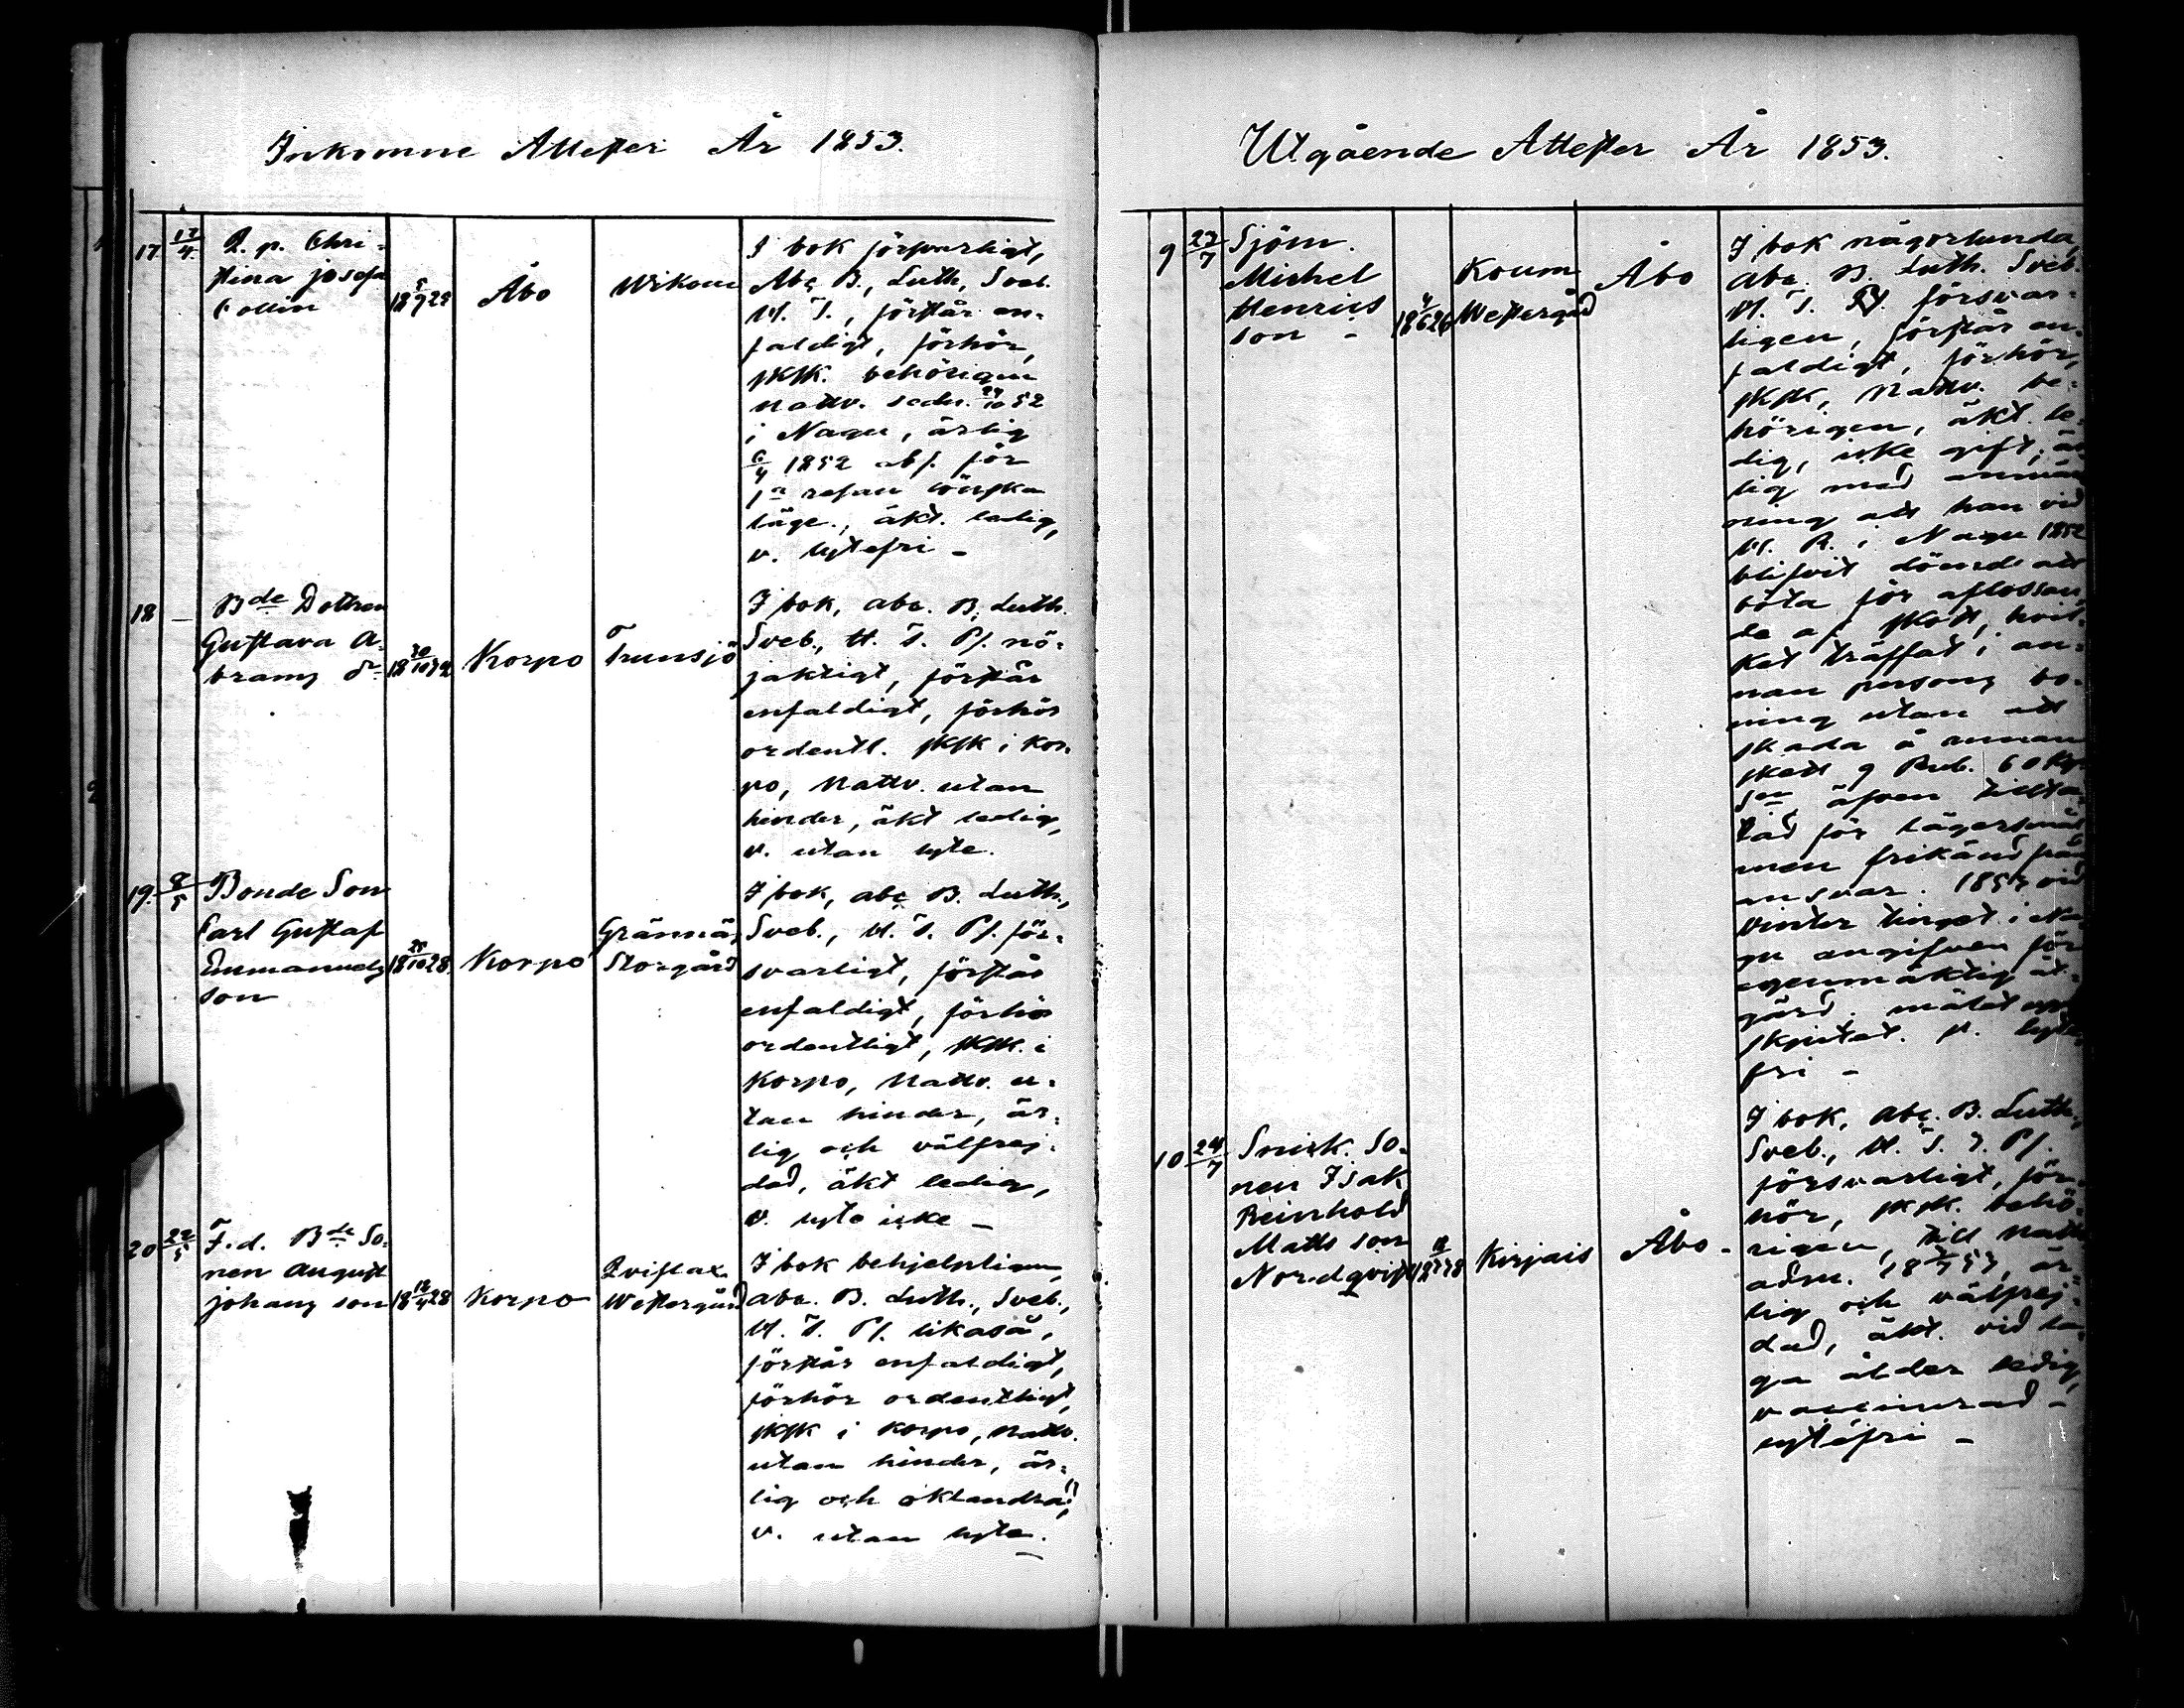 Inkomne Attester År 1853.
17 17/4 Q. p. Chri-
stina Josefa
Collin
18 5/9 28 Åbo Wikom
I bok försvarligt,
Abc B., Luth, Sveb.
H. T., förstår en-
faldigt, förhör,
skfk. behörigen
Nattv. sedn. 24/10 52
i Nagu, ärlig
6/4 1852 abs. för
1a resan lönska
läge., äkt. ledig,
v. lytefri -
18 - Bde Dottren
Gustava A-
brams dr
18 20/10 32 Korpo Trunsjö
I bok, abc. B. Luth.
Sveb., H. T. Ps. nö-
jaktigt, förstår
enfaldigt, förhör
ordentl. skfk i Kor-
po, Nattv. utan
hinder, äkt ledig,
v. utan lyte.
19. 9/5 Bonde Son
Carl Gustaf
Emmanuels
son
18 25/10 28 Korpo Grännäs
Storgård
I bok, abc B. Luth.,
Sveb., H. T. Ps. för-
svarligt, förstår
enfaldigt, förhör
ordentligt, skfk. i
Korpo, Nattv. u-
tan hinder, är-
lig och välfrej-
dad, äkt ledig,
v. lyte icke -
20 22/5 F. d. Bde So-
nen August
Johans son
18 12/4 28 Korpo Qvistax
Westergård
I bok behjelpligen,
abc. B. Luth., Sveb.,
H. T. Ps. likaså,
förstår enfaldigt,
förhör ordentligt,
skfk i Korpo, Nattv.
utan hinder, är-
lig och oklandrad,
v. utan lyte.
Utgående Attester År 1853.
9 23/7 Sjöm.
Michel
Henrics
son -
18 4/6 26 Koum
Westergård
Åbo
I bok någorlunda,
abc. B. Luth. Sveb.
H. T. Ps. försvar-
ligen, förstår en-
faldigt, förhör,
skfk, Nattv. be-
hörigen, äkt. le-
dig, icke gift, är-
lig med anmär
ning att han vid
H. R. i Nagu 1852
blifvit dömd att
böta för aflossan-
de af skott, hvil-
ket träffat i an-
nan persons bo-
ning utan att
skada å annan
skett 9 Rub. 60 Kp.
Sm äfven tillta-
lad för lägersmål
men frikänd från
ansvar. 1853 vid
Vinter tinget i Na-
gu angifven för
egenmäktig åt-
gärd. målet upp-
skjutet. v. lyte-
fri -
10 24/7 Snick. So-
nen Isak
Reinhold
Matts son
Nordqvist
Kirjais Åbo -
I bok, abc. B. Luth,
Sveb., H. T. J. Ps.
försvarligt, för-
hör, skfk. behö-
rigen, till Nattv
adm. 53, är-
lig och välfrej-
dad, äkt. vid la-
ga ålder ledig,
vaccinerad -
lytefri -